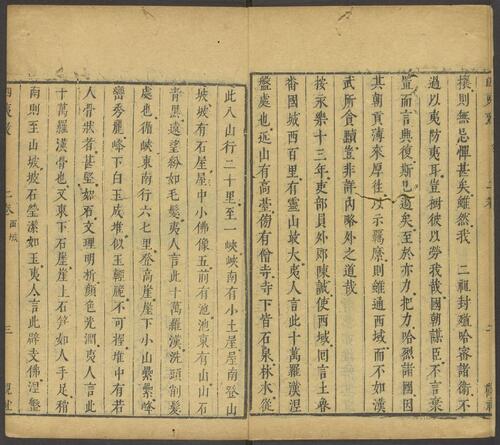 攘則無忌憚甚矣雖然我 二祖封殖哈審諸衛不
過以夷防夷耳豈損彼以勞我哉國朝謀臣不言棄
置而言興復斯已過矣至於亦力把力哈烈諸國因
其朝貢薄來厚往以示羈縻則雖通西域而不如漢
武所貪黷豈非詳內略外之道哉
按永樂十三年吏部員外郎陳誠使西域回言土魯
番國城西百里有靈山最大夷人言此十萬羅漢涅
盤處也近山有高臺傍有僧寺寺下皆石泉林木從
此入山行二十里至一峽峽南有小土屋屋南登山
坡坡有石屋屋中小佛像五前有池池東有山山石
青黑遠望紛如毛髮夷人言此十萬羅漢洗頭削髮
處也循峽東南行六七里登高崖崖下小山纍纍峰
巒秀麗峰下白玉成堆似玉輕脆不可握堆中有若
人骨狀者甚堅如石文理明析顏色光潤夷人言此
十萬羅漢骨也又東下石崖崖上石笋如人手足稍
南則至山坡坡石瑩潔如玉夷人言此辟支佛涅盤
四夷考 二卷 西域 三